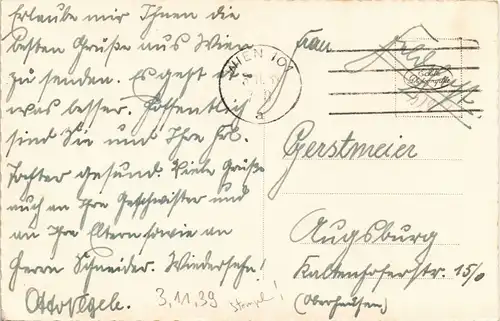 Erlaube mir Ihnen die
besten Grüße aus Wien
zu senden. Es geht et
was besser. Hoffentlich
sind Sie und Ihre Frl.
Tochter gesund. Viele Grüße
auch an Ihre Geschwister und
an Ihre Eltern sowie an
Herrn Schneider. Wiedersehn!
Otto Vegele.
3,11,39 Stempel!
WIEN 101
Frau
Gerstmeier
Augsburg
Kaltenhoferstr. 15/0
(Oberhausen)